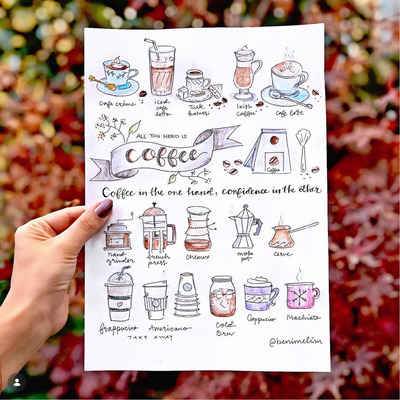 cafe crème
iced cafe latte
Türk kahvesi
Irish Coffee
cafe latte
ALL YOU NEED IS
coffee
Coffee
Coffee in the one hand, confidence in the other
hand grinder
french press
Chemex
moka pot
cezve
frappucino
Americano
Cold Brew
Cappucino
Machiato
TAKE AWAY
@benimelim